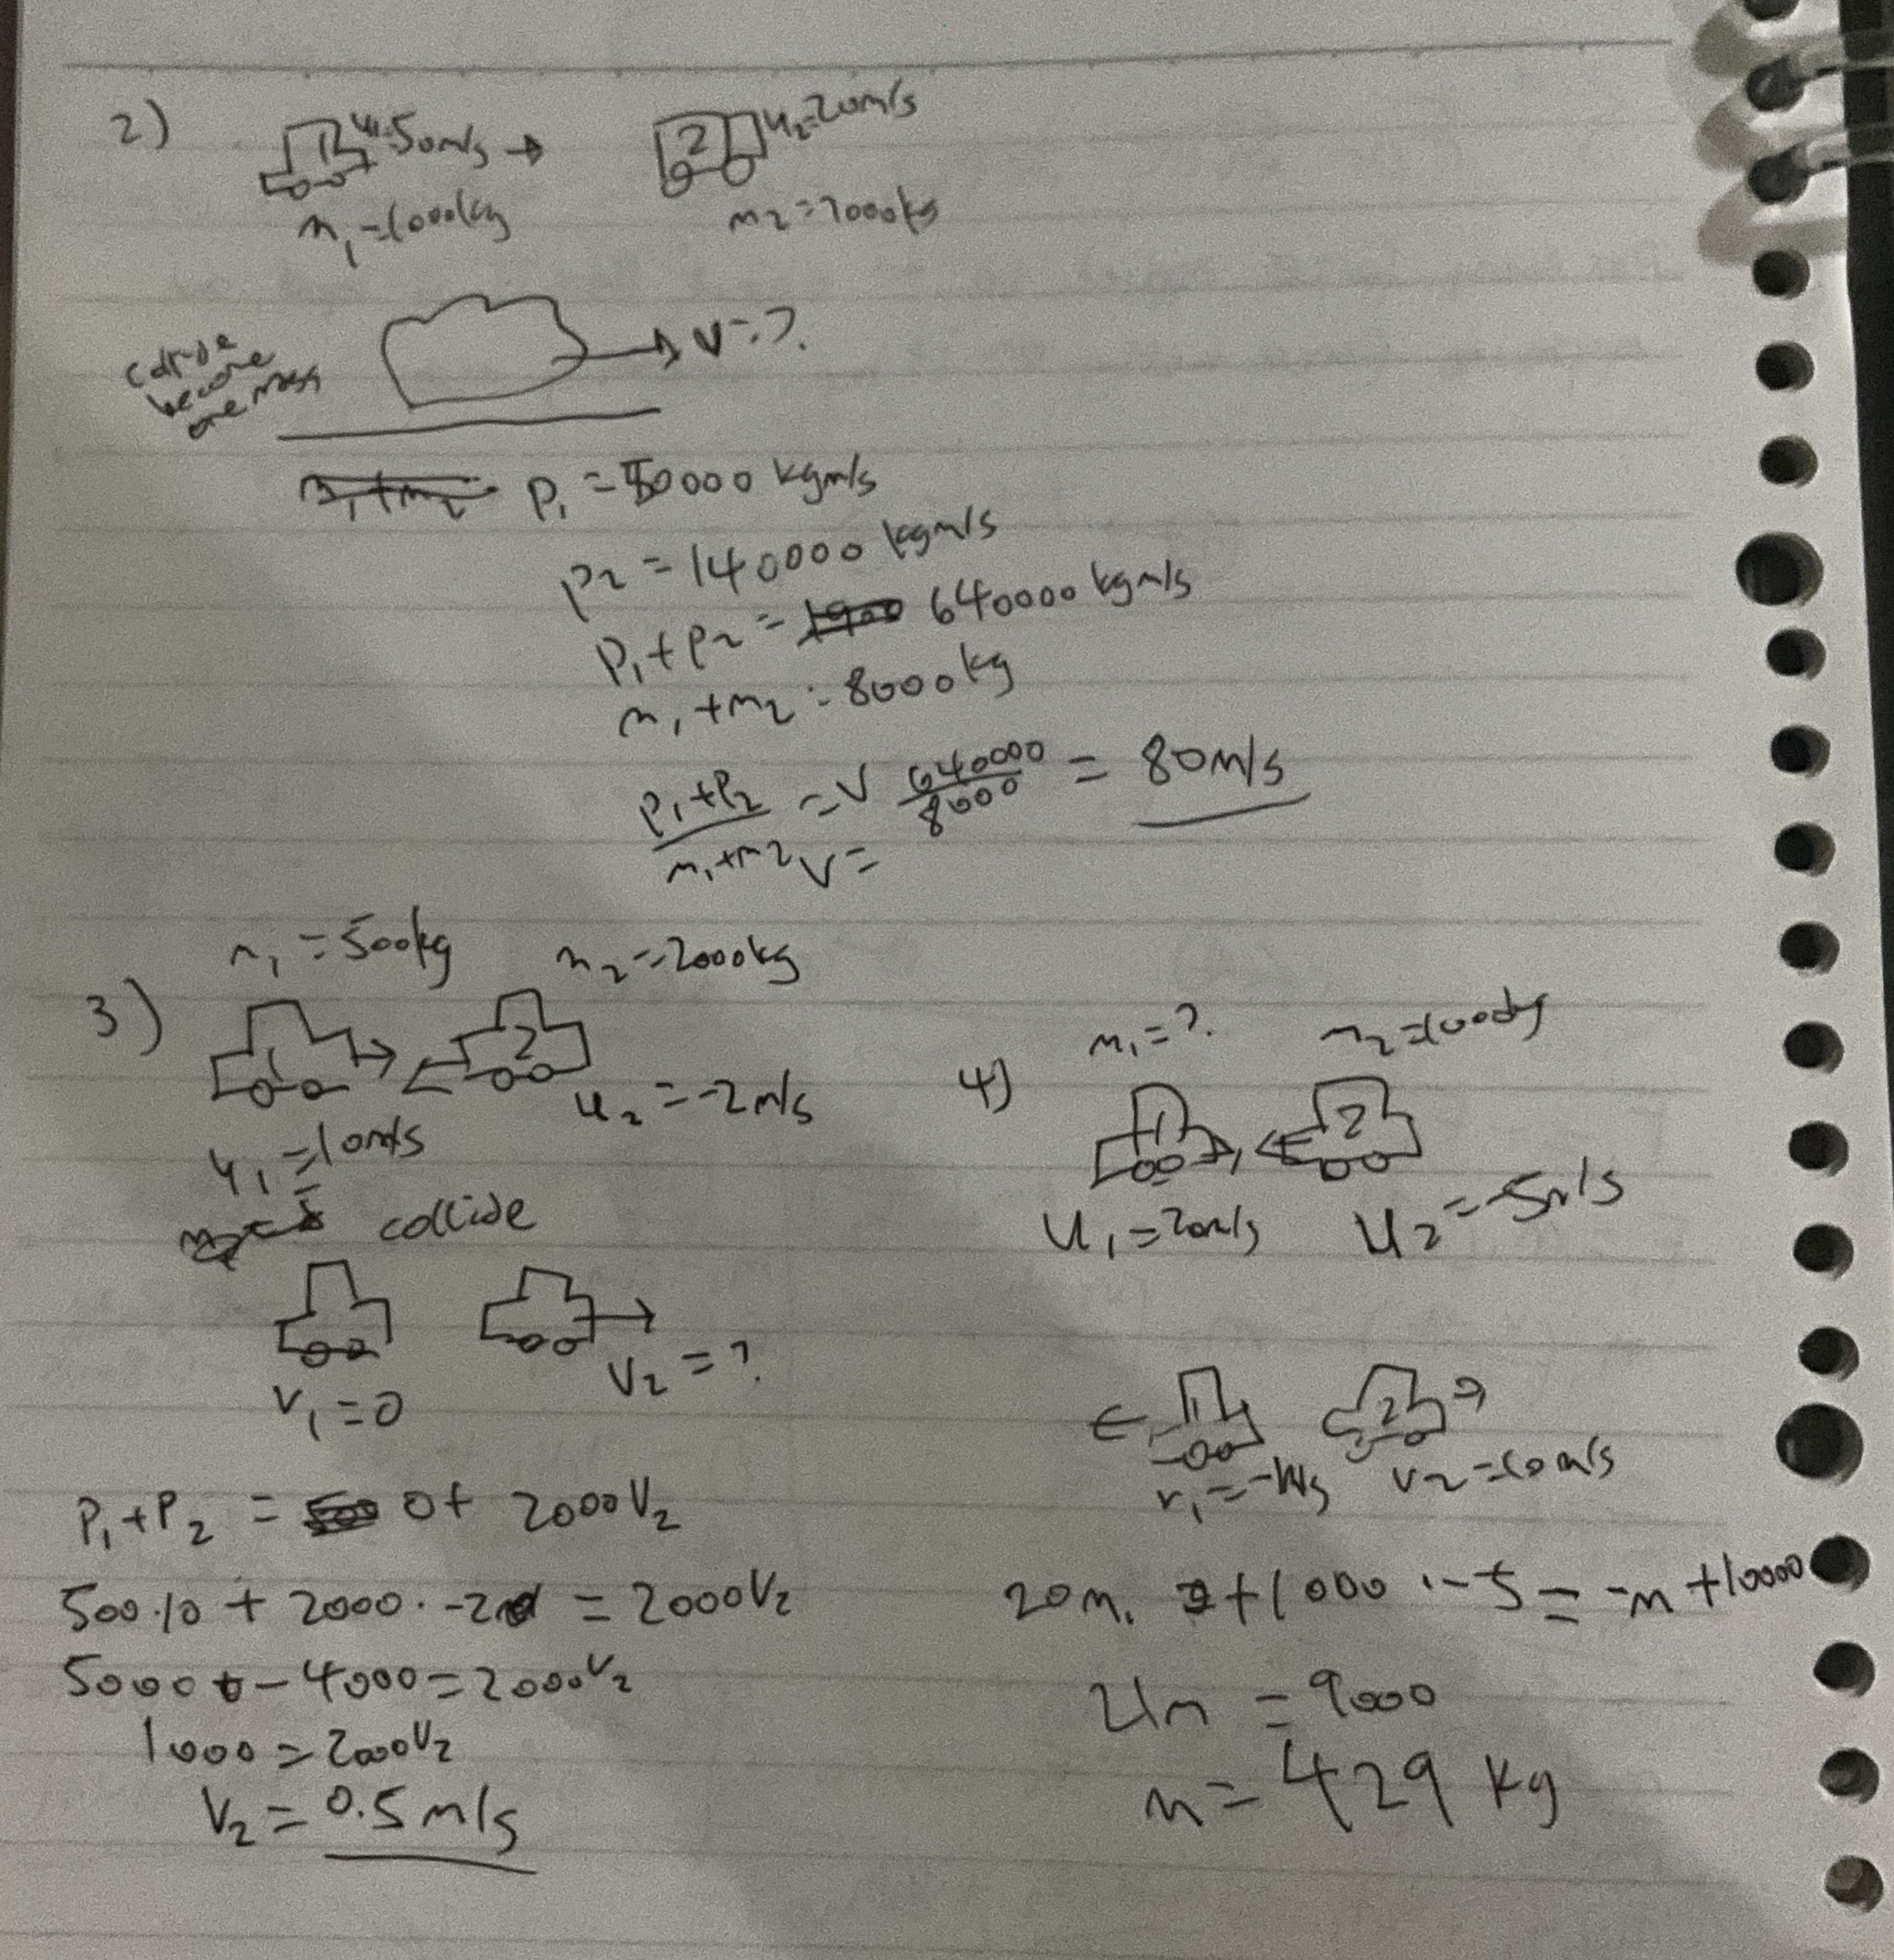 2)
1 u₁=50m/s → 2 u₂=20m/s
m₁=1000kg m₂=7000kg
collide
become
one mass
v=?
m₁+m₂ P₁ = 50000 kgm/s
P₂ = 140000 kgm/s
P₁+P₂ = 1900 640000 kgm/s
m₁+m₂ = 8000kg
P₁+P₂/m₁+m₂ = V 640000/8000 = 80m/s
V=
m₁=500kg m₂=2000kg
3)
1 2
u₂=-2m/s
u₁=10m/s
collide
V₁=0 V₂=?
P₁+P₂ = 500 0+ 2000V₂
500·10 + 2000·-2 = 2000V₂
5000 + -4000=2000V₂
1000=2000V₂
V₂= 0.5m/s
m₁=? m₂=1000kg
4)
1 2
u₁=20m/s u₂=-5m/s
1 2
v₁=-1m/s v₂=10m/s
20m. +1000·-5= -m+10000
21m = 9000
m= 429 kg